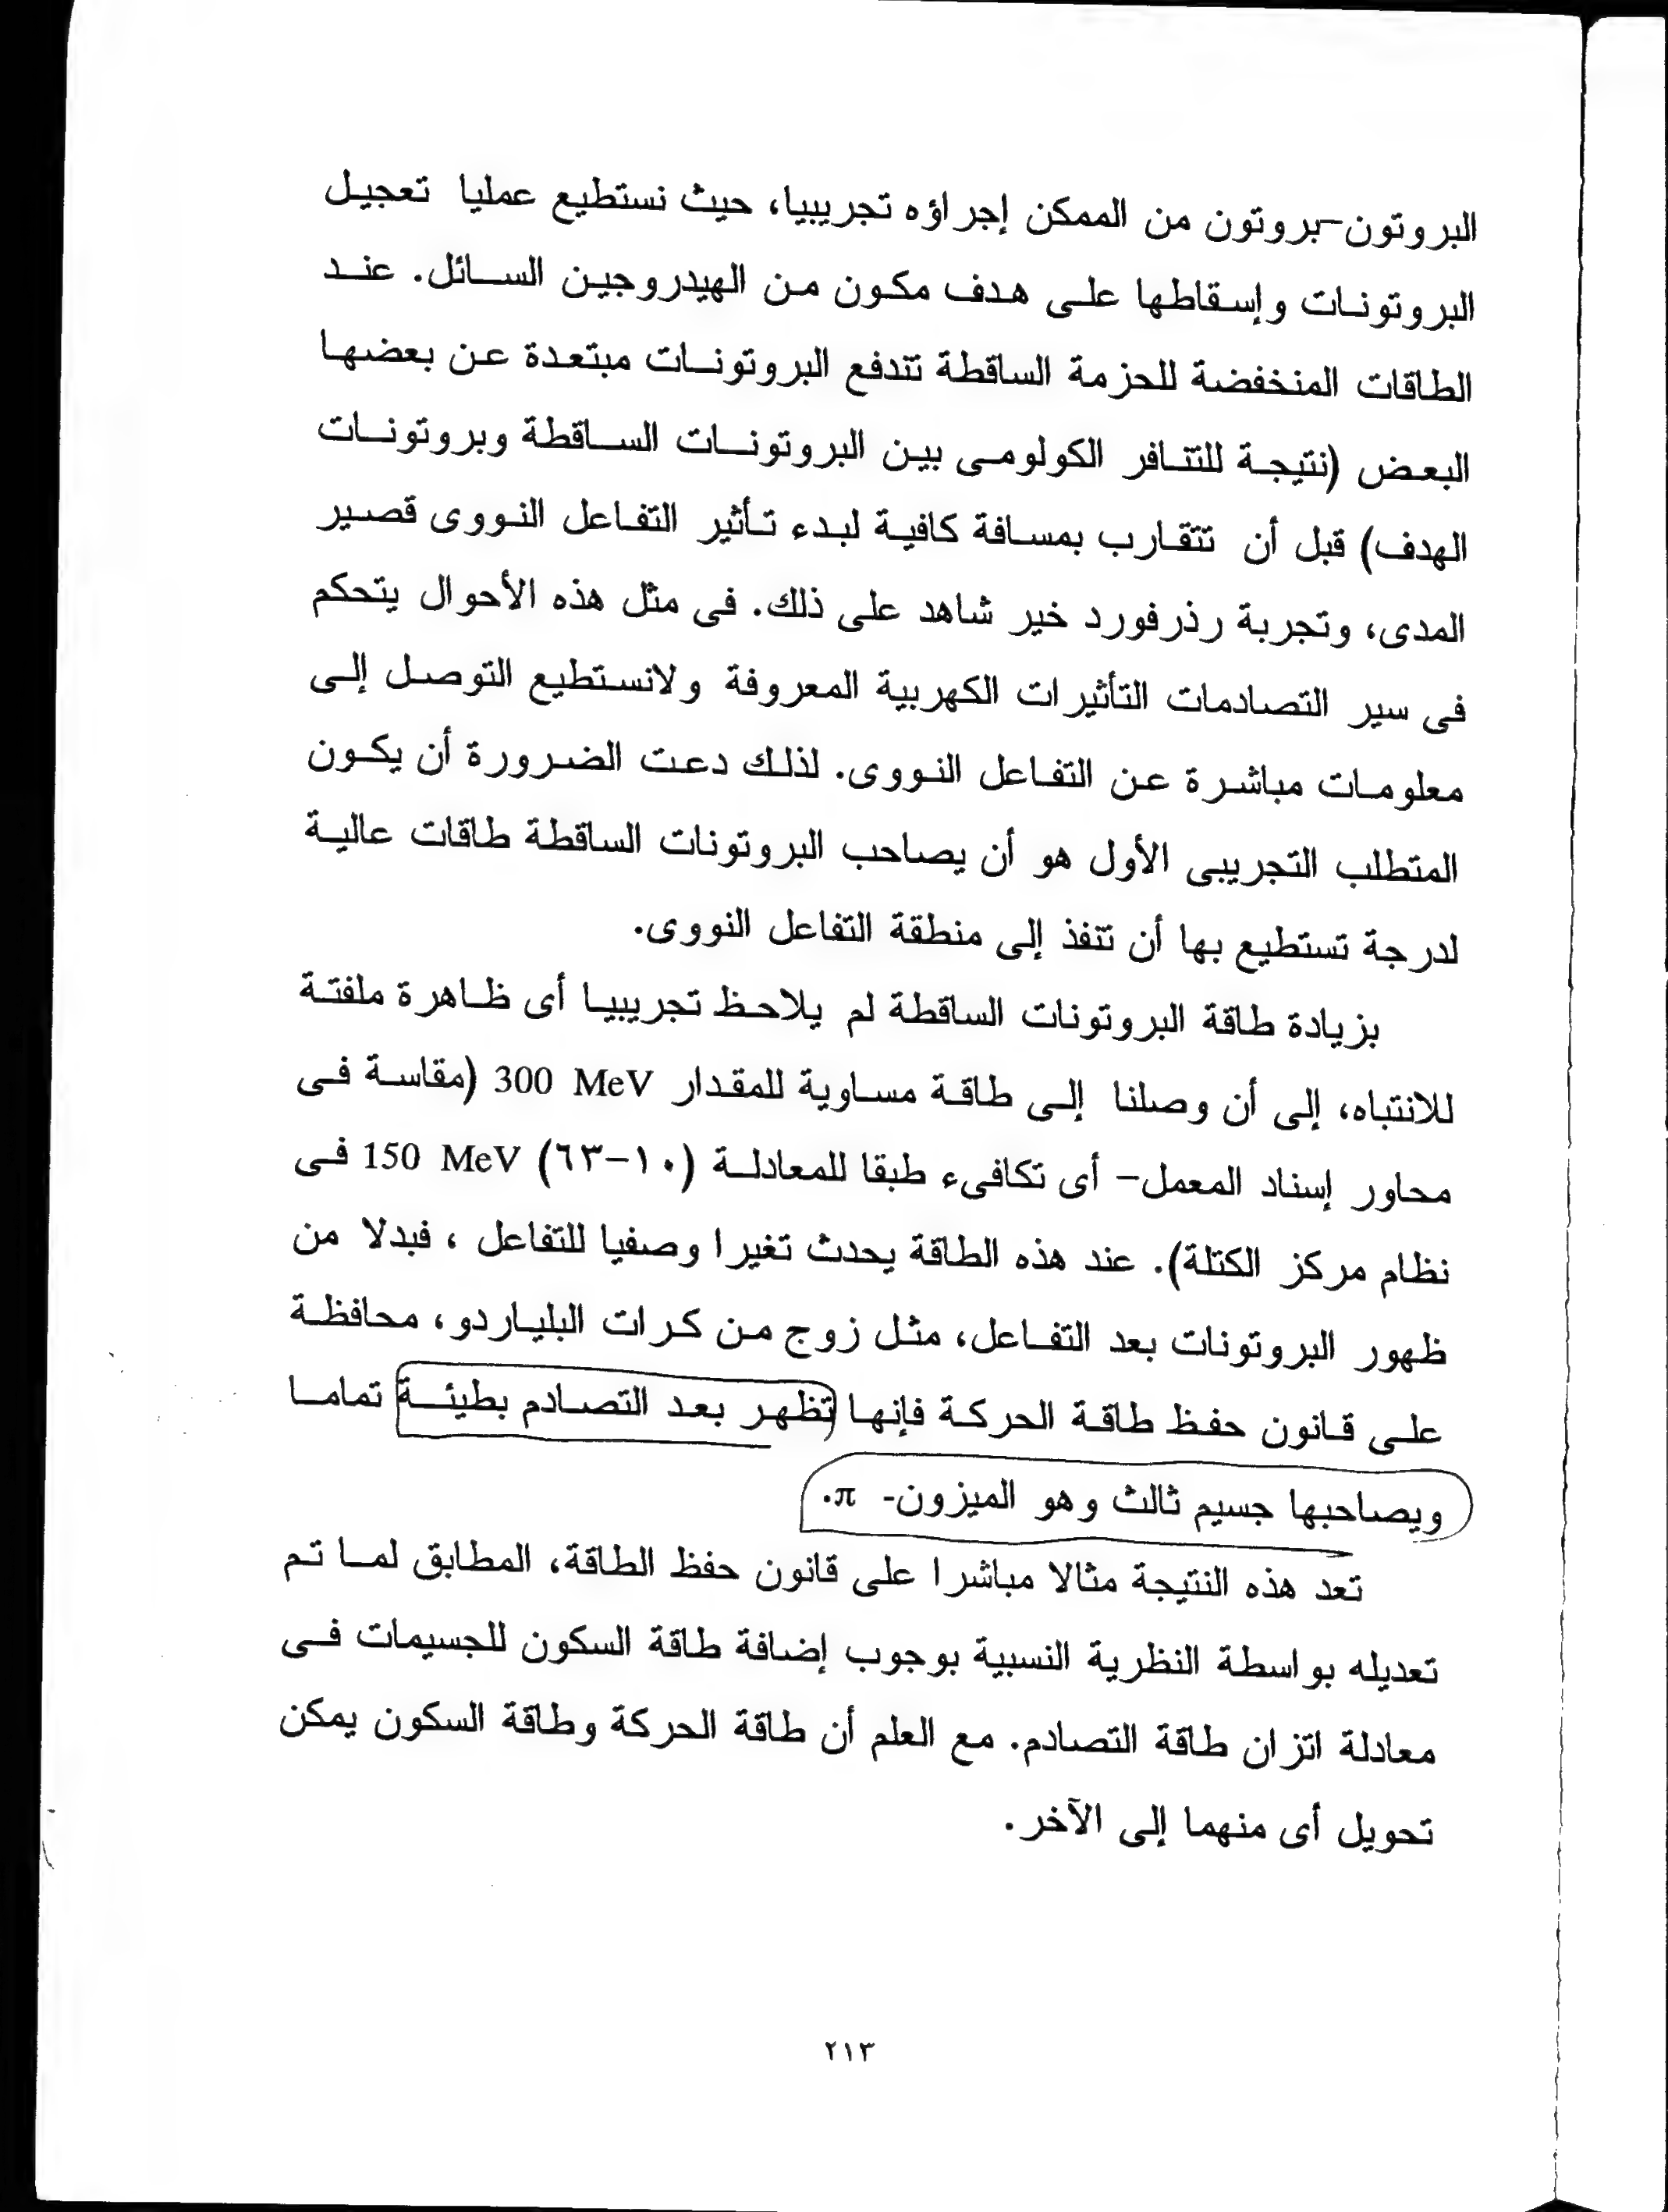 البروتون-بروتون من الممكن إجراؤه تجريبيا، حيث نستطيع عمليا تعجيل
البروتونات وإسقاطها على هدف مكون من الهيدروجين السائل. عند
الطاقات المنخفضة للحزمة الساقطة تتدفع البروتونات مبتعدة عن بعضها
البعض (نتيجة للتنافر الكولومى بين البروتونات الساقطة وبروتونات
الهدف) قبل أن تتقارب بمسافة كافية لبدء تأثير التفاعل النووى قصير
المدى، وتجربة رذرفورد خير شاهد على ذلك. فى مثل هذه الأحوال يتحكم
فى سير التصادمات التأثيرات الكهربية المعروفة ولانستطيع التوصل إلى
معلومات مباشرة عن التفاعل النووى. لذلك دعت الضرورة أن يكون
المتطلب التجريبى الأول هو أن يصاحب البروتونات الساقطة طاقات عالية
لدرجة تستطيع بها أن تنفذ إلى منطقة التفاعل النووى.
بزيادة طاقة البروتونات الساقطة لم يلاحظ تجريبيا أى ظاهرة ملفتة
للانتباه، إلى أن وصلنا إلى طاقة مساوية للمقدار 300 MeV (مقاسة فى
محاور إسناد المعمل- أى تكافىء طبقا للمعادلة (١٠-٦٣) 150 MeV فى
نظام مركز الكتلة). عند هذه الطاقة يحدث تغيرا وصفيا للتفاعل ، فبدلا من
ظهور البروتونات بعد التفاعل، مثل زوج من كرات البلياردو، محافظة
على قانون حفظ طاقة الحركة فإنها تظهر بعد التصادم بطيئة تماما
ويصاحبها جسيم ثالث وهو الميزون- π.
تعد هذه النتيجة مثالا مباشرا على قانون حفظ الطاقة، المطابق لما تم
تعديله بواسطة النظرية النسبية بوجوب إضافة طاقة السكون للجسيمات فى
معادلة اتزان طاقة التصادم. مع العلم أن طاقة الحركة وطاقة السكون يمكن
تحويل أى منهما إلى الآخر.
٢١٣